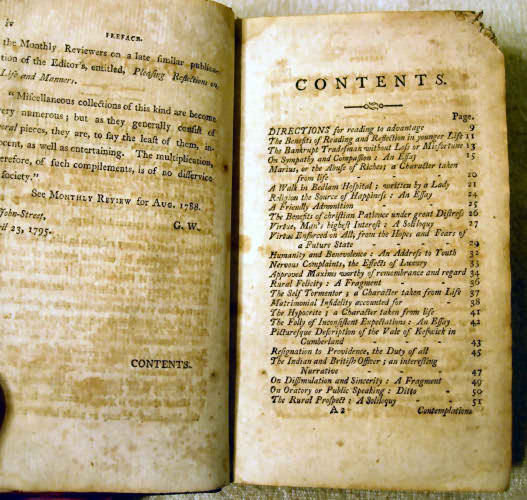 iv
PREFACE.
the Monthly Reviewers on a late similar publica-
tion of the Editor's, entitled, Pleasing Reflections on
Life and Manners.
"Miscellaneous collections of this kind are become
very numerous; but as they generally consist of
moral pieces, they are, to say the least of them, in-
ocent, as well as entertaining. The multiplication,
therefore, of such compilements, is of no disservice
society."
See MONTHLY REVIEW for AUG. 1788.
G. W.
John-Street,
ril 23, 1795.
CONTENTS.
CONTENTS.
Page.
DIRECTIONS for reading to advantage 9
The Benefits of Reading and Reflection in younger Life 11
The Bankrupt Tradesman without Loss or Misfortune 13
On Sympathy and Compassion: An Essay 15
Marius, or the Abuse of Riches; a Character taken
from life 20
A Walk in Bedlam Hospital; written by a Lady 21
Religion the Source of Happiness: An Essay 24
A Friendly Admonition 25
The Benefits of christian Patience under great Distress 26
Virtue, Man's highest Interest: A Soliloquy 27
Virtue Enforced on All, from the Hopes and Fears of
a Future State 29
Humanity and Benevolence: An Address to Youth 32
Nervous Complaints, the Effects of Luxury 33
Approved Maxims worthy of remembrance and regard 34
Rural Felicity: A Fragment 36
The Self Tormentor; a Character taken from Life 37
Matrimonial Infidelity accounted for 38
The Hypocrite; a Character taken from life 41
The Folly of Inconsistent Expectations: An Essay 42
Picturesque Description of the Vale of Keswick in
Cumberland 43
Resignation to Providence, the Duty of all 45
The Indian and British Officer; an interesting
Narrative 47
On Dissimulation and Sincerity: A Fragment 49
On Oratory or Public Speaking: Ditto 50
The Rural Prospect: A Soliloquy 51
A 2 Contemplation